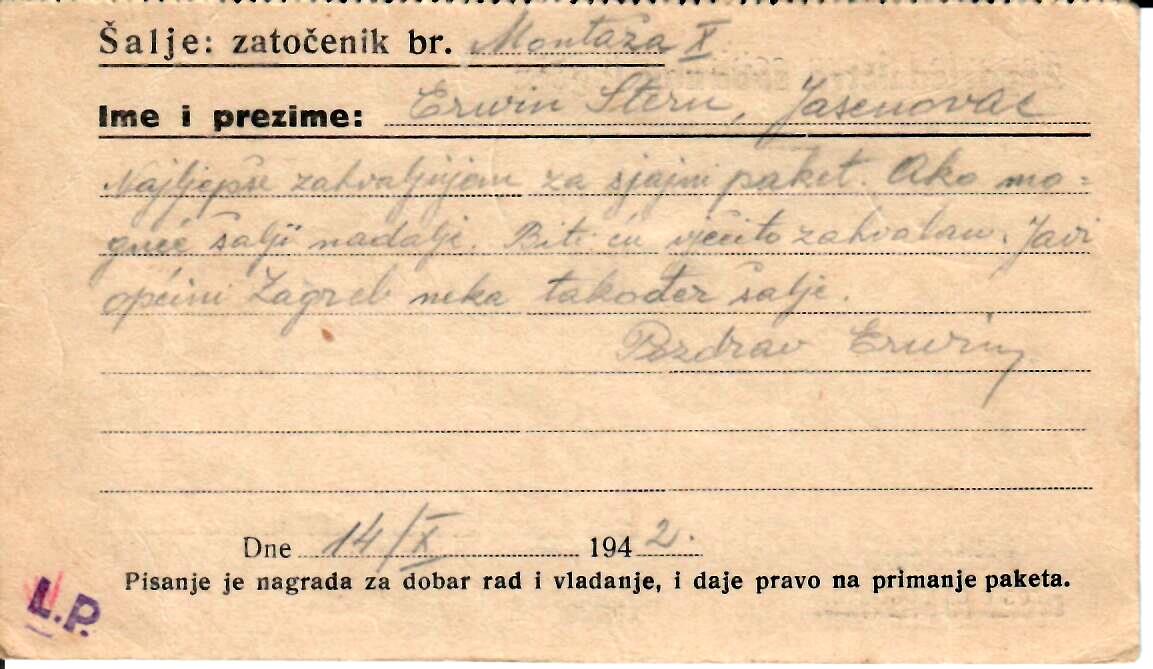 Šalje: zatočenik br. Montaža X
Ime i prezime: Erwin Stern, Jasenovac
Najljepše zahvaljujem za sjajni paket. Ako mo=
guće šalji nadalje. Biti ću vječito zahvalan. Javi
općini Zagreb neka također šalje.
Pozdrav Erwin
Dne 14/X 1942.
Pisanje je nagrada za dobar rad i vladanje, i daje pravo na primanje paketa.
L.P.